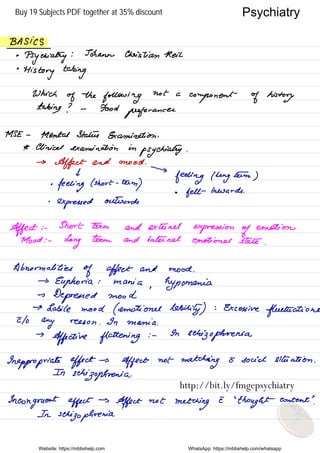 Buy 19 Subjects PDF together at 35% discount
Psychiatry
BASICS
• Psychiatry : Johann Christian Reil
• History taking
Which of the following not a component of history
taking? - Food preferances
MSE - Mental Status Examination.
* Clinical examination in psychiatry.
→ Affect and mood.
↓ → feeling (long term)
• feeling (short-term) • fell- inwards.
• expressed outwards
Affect :- Short term and external expression of emotion
Mood:- long term and internal emotional state.
Abnormalities of affect and mood.
→ Euphoria : mania, hypomania
→ Depressed mood
→ Labile mood (emotional lability) : Excessive fluctuations
c̄/o any reason. In mania.
→ Affective flattening :- In schizophrenia
Inappropriate affect → Affect not matching c̄ social situation.
In schizophrenia.
http://bit.ly/fmgepsychiatry
Incongruent affect → Affect not matching c̄ "thought content".
In schizophrenia
Website: https://mbbshelp.com WhatsApp: https://mbbshelp.com/whatsapp